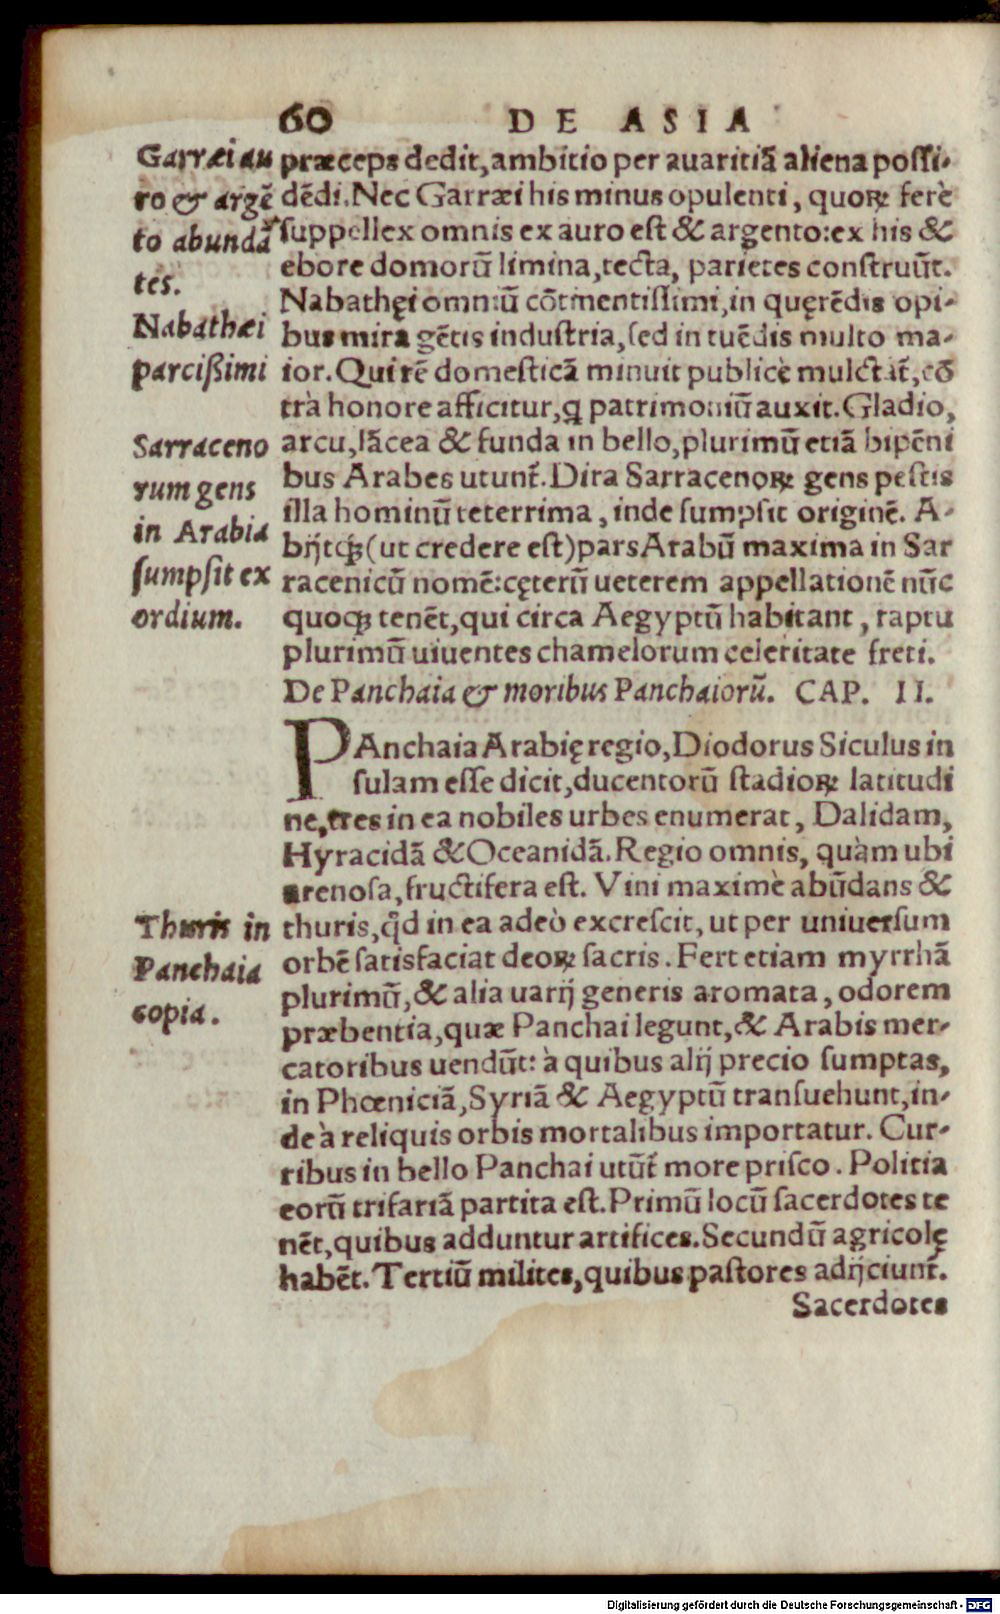 60 DE ASIA
Garræi au
ro & argẽ
to abundã
tes.
Nabathæi
parcißimi
Sarraceno
rum gens
in Arabia
sumpsit ex
ordium.
Thuris in
Panchaia
copia.
præceps dedit, ambitio per auaritiã aliena possi-
dẽdi. Nec Garræi his minus opulenti, quoꝝ ferè
suppellex omnis ex auro est & argento: ex his &
ebore domorũ limina, tecta, parietes construũt.
Nabathęi omniũ cõtinentissimi, in quęrẽdis opi-
bus mira gẽtis industria, sed in tuẽdis multo ma-
ior. Qui rẽ domesticã minuit publicè mulctat᷒, cõ
trà honore afficitur, ꝗ patrimoniũ auxit. Gladio,
arcu, lãcea & funda in bello, plurimũ etiã bipẽni
bus Arabes utunt᷒. Dira Sarracenoꝝ gens pestis
illa hominũ teterrima, inde sumpsit originẽ. A-
bijtqꝫ (ut credere est) pars Arabũ maxima in Sar
racenicũ nomẽ: cęterũ ueterem appellationẽ nũc
quoqꝫ tenẽt, qui circa Aegyptũ habitant, raptu
plurimũ uiuentes chamelorum celeritate freti.
De Panchaia & moribus Panchaiorũ. CAP. II.
PAnchaia Arabię regio, Diodorus Siculus in
sulam esse dicit, ducentorũ stadioꝝ latitudi
ne, tres in ea nobiles urbes enumerat, Dalidam,
Hyracidã & Oceanidã. Regio omnis, quàm ubi
arenosa, fructifera est. Vini maximè abũdans &
thuris, qd̃ in ea adeò excrescit, ut per uniuersum
orbẽ satisfaciat deoꝝ sacris. Fert etiam myrrhã
plurimũ, & alia uarij generis aromata, odorem
præbentia, quæ Panchai legunt, & Arabis mer-
catoribus uendũt: à quibus alij precio sumptas,
in Phœniciã, Syriã & Aegyptũ transuehunt, in-
de à reliquis orbis mortalibus importatur. Cur-
ribus in bello Panchai utũt᷒ more prisco. Politia
eorũ trifariã partita est. Primũ locũ sacerdotes te
nẽt, quibus adduntur artifices. Secundũ agricolę
habẽt. Tertiũ milites, quibus pastores adijciunt᷒.
Sacerdotes
Digitalisierung gefördert durch die Deutsche Forschungsgemeinschaft - DFG